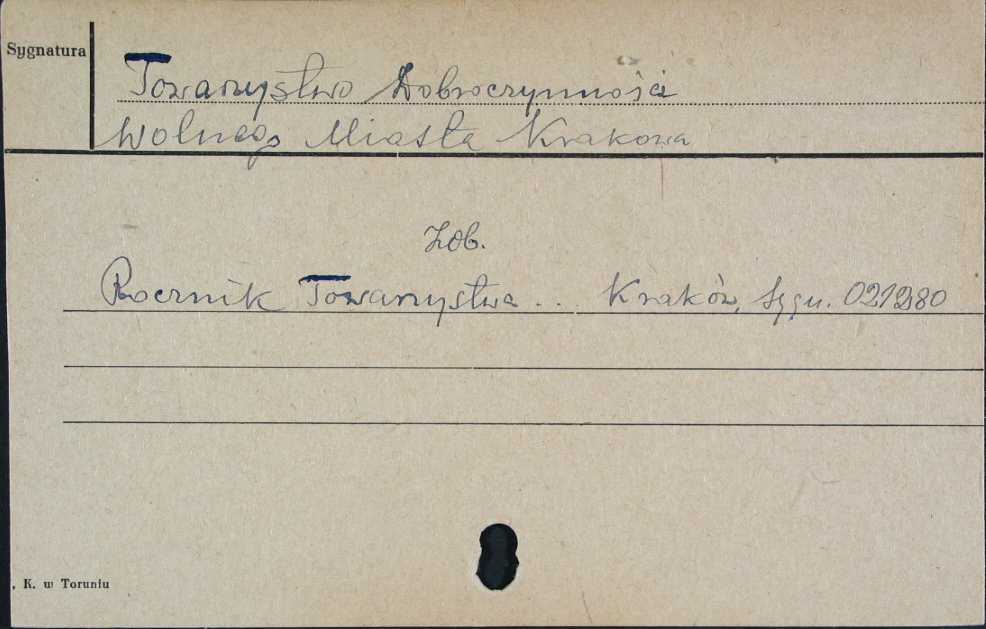 Sygnatura
Towarzystwo Dobroczynności
Wolnego Miasta Krakowa
Zob.
Rocznik Towarzystwa... Kraków, Sygn. 021280
. K. w Toruniu